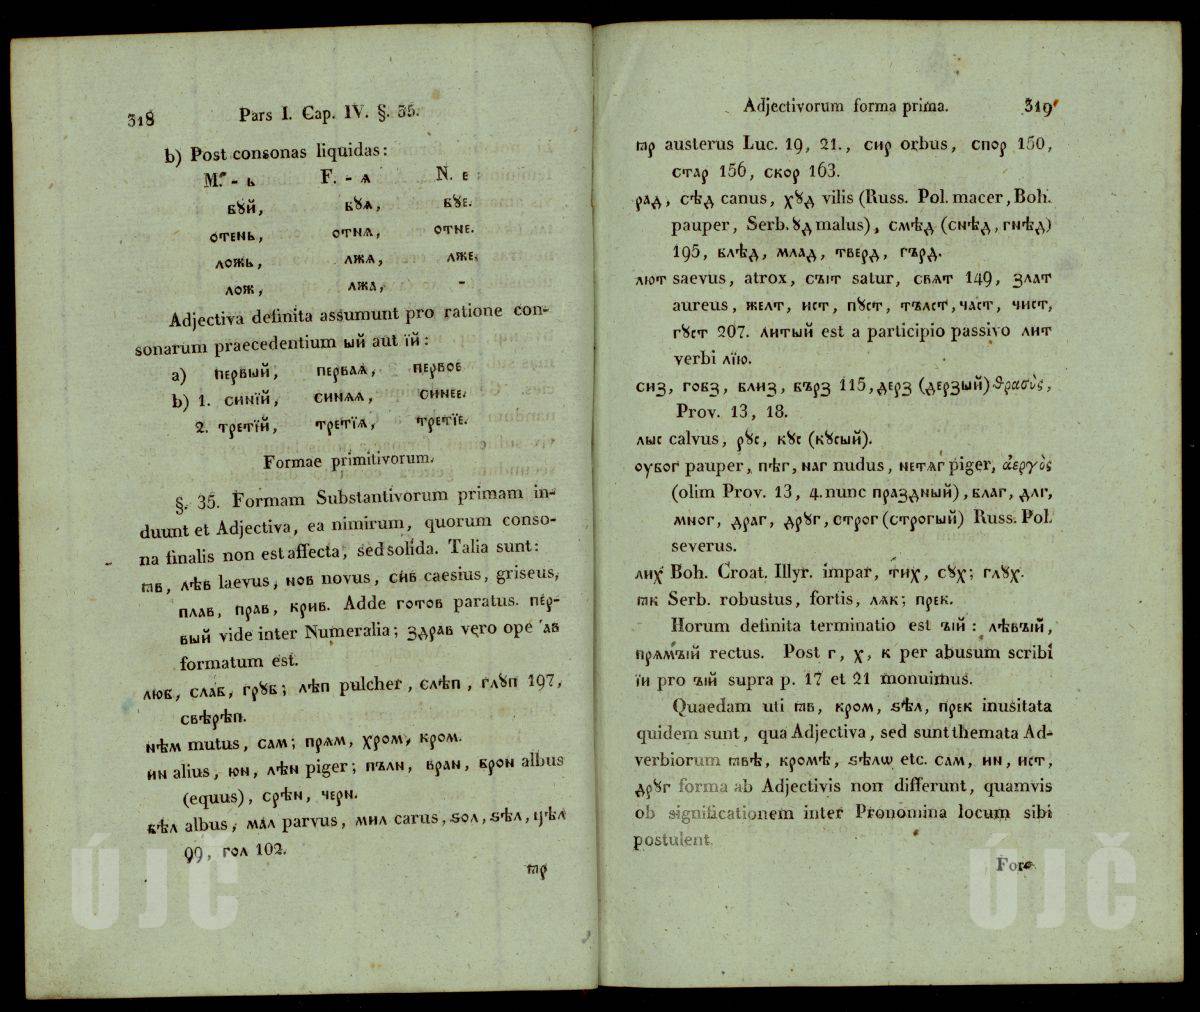 318 Pars I. Cap. IV. §. 35.
b) Post consonas liquidas:
M. - ь F. - ѧ N. е
бꙋй, бꙋѧ, бꙋе.
отень, отнѧ, отне.
ложь, лжѧ, лже,
лож, лжа, -
Adjectiva definita assumunt pro ratione con-
sonarum praecedentium ый aut їй:
a) первый, перваѧ, первое
b) 1. синїй, синѧѧ, синее.
2. третїй, третїѧ, третїе.
Formae primitivorum.
§. 35. Formam Substantivorum primam in-
duunt et Adjectiva, ea nimirum, quorum conso-
na finalis non est affecta, sed solida. Talia sunt:
ꙗв, лѣв laevus, нов novus, сив caesius, griseus,
плав, прав, крив. Adde готов paratus. пер-
вый vide inter Numeralia; здрав vero ope ав
formatum est.
люб, слаб, грꙋб; лѣп pulcher, слѣп, глꙋп 197,
свѣрѣп.
нѣм mutus, сам; прѧм, хром, кром.
ин alius, юн, лѣн piger; пълн, вран, брон albus
(equus), срѣн, черн.
бѣл albus, мал parvus, мил carus, ѕол, ѕѣл, цѣл
99, гол 102.
ꙗр
Adjectivorum forma prima. 319
ꙗр austerus Luc. 19, 21., сир orbus, спор 150,
стар 156, скор 163.
рад, сѣд canus, хꙋд vilis (Russ. Pol. macer, Boh.
pauper, Serb. ꙋд malus), смѣд (снѣд, гнѣд)
195, блѣд, млад, тверд, гърд.
лют saevus, atrox, съіт satur, свѧт 149, злат
aureus, желт, ист, пꙋст, тълст, част, чист,
гꙋст 207. литый est a participio passivo лит
verbi лїю.
сиз, гобз, близ, бърз 115, дерз (дерзый) θρασὺς,
Prov. 13, 18.
лыс calvus, рꙋс, кꙋс (кꙋсый).
оубог pauper, пѣг, наг nudus, нетѧг piger, ἀεργὸς
(olim Prov. 13, 4. nunc праздный), благ, длг,
мног, драг, дрꙋг, строг (строгый) Russ. Pol.
severus.
лих Boh. Croat. Illyr. impar, тих, сꙋх; глꙋх.
ꙗк Serb. robustus, fortis, лѧк; прек.
Horum definita terminatio est ъій: лѣвъій,
прѧмъій rectus. Post г, х, к per abusum scribi
їи pro ъій supra p. 17 et 21 monuimus.
Quaedam uti ꙗв, кром, ѕѣл, прек inusitata
quidem sunt, qua Adjectiva, sed sunt themata Ad-
verbiorum ꙗвѣ, кромѣ, ѕѣлѡ etc. сам, ин, ист,
дрꙋг forma ab Adjectivis non differunt, quamvis
ob significationem inter Pronomina locum sibi
postulent.
For-
ÚJČ
ÚJČ